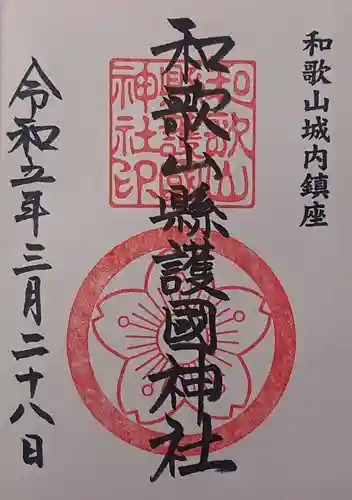 和歌山城内鎮座
和歌山縣護國神社
和歌山縣護國神社印
令和五年三月二十八日